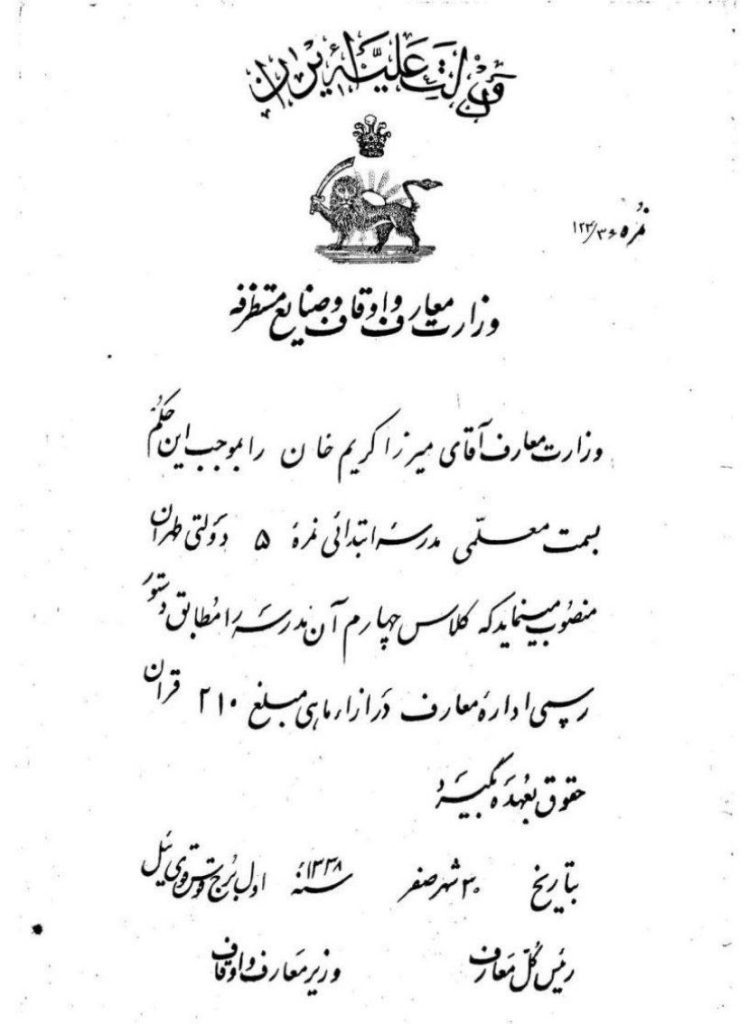 دولت علیّه ایران
نمره ۱۲۳/۳۶
وزارت معارف و اوقاف و صنایع مستظرفه
وزارت معارف آقای میرزا کریم خان را بموجب این حکم
بسمت معلّمی مدرسه ابتدائی نمرهٔ ۵ دولتی طهران
منصوب مینماید که کلاس چهارم آن مدرسه را مطابق دستور
رسمی ادارهٔ معارف در ازاء ماهی مبلغ ۲۱۰ قران
حقوق بعهده بگیرد
بتاریخ ۳۰ شهر صفر سنهٔ ۱۳۳۸ اول برج قوس قوی ئیل
رئیس کلّ معارف وزیر معارف و اوقاف